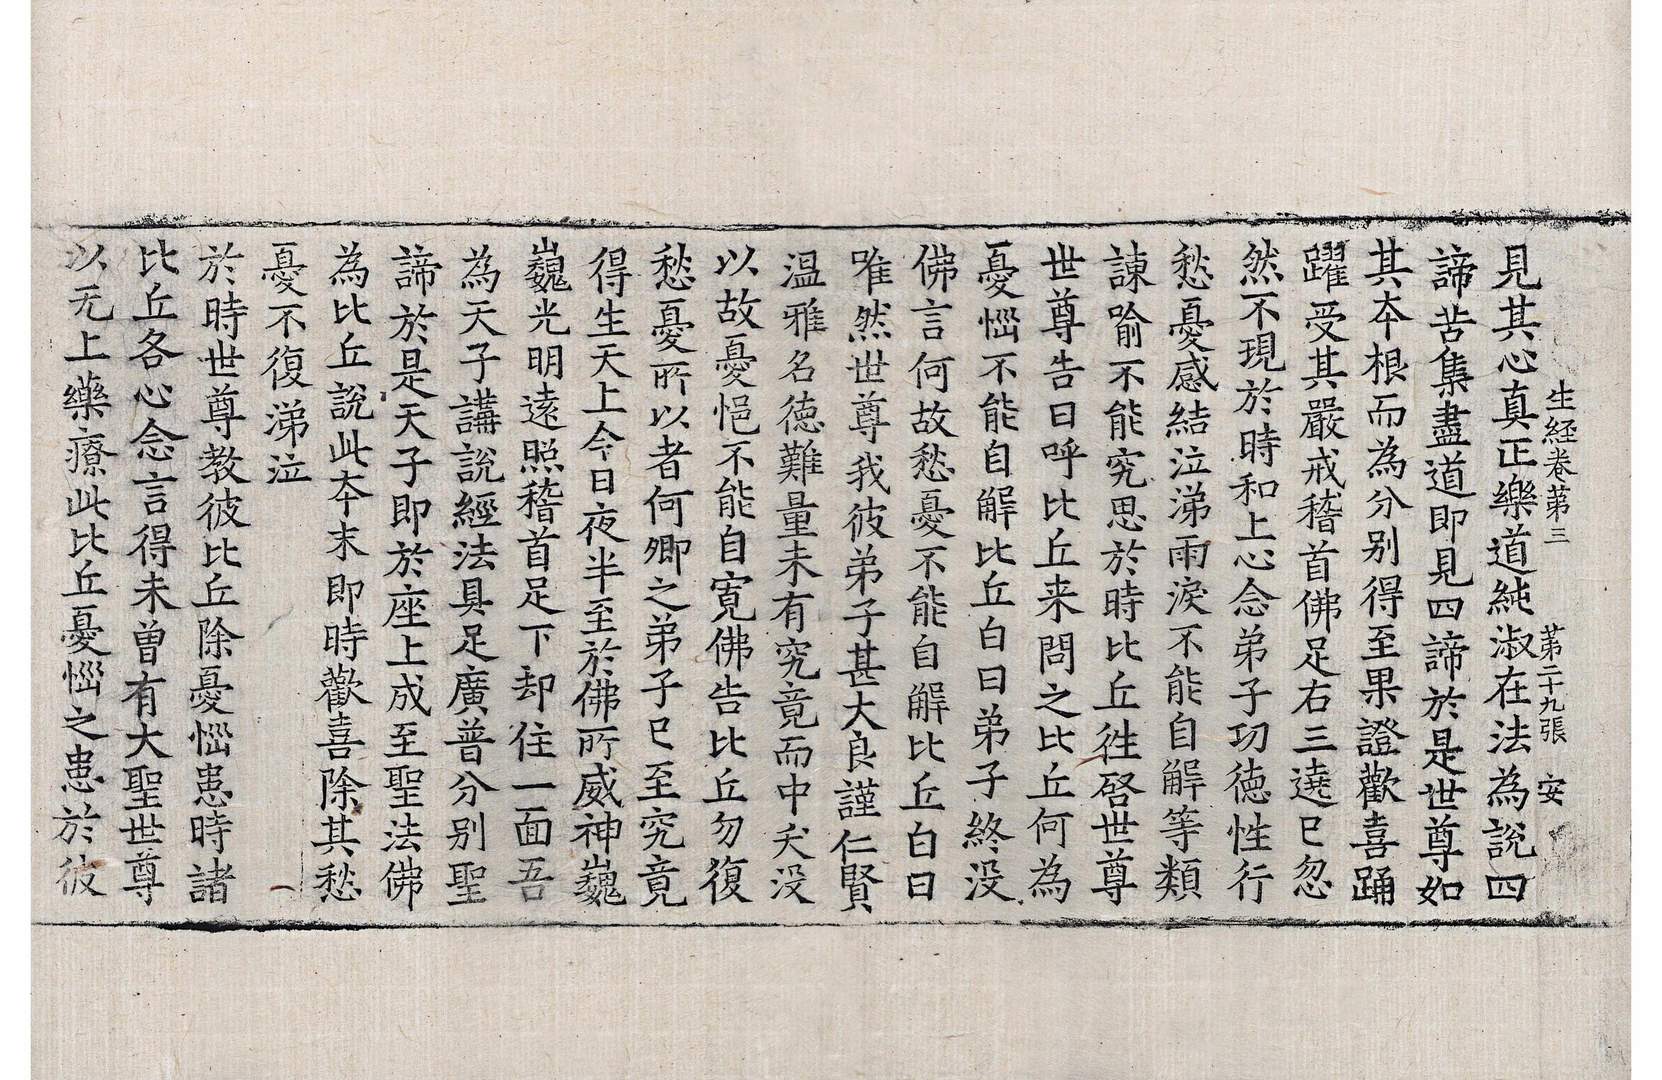 生経卷苐三　苐二十九張　安
見其心真正樂道純淑在法為說四
諦苦集盡道即見四諦於是世尊如
其夲根而為分別得至果證歡喜踊
躍受其嚴戒稽首佛足右三遶已忽
然不現於時和上心念弟子功徳性行
愁憂感結泣涕雨淚不能自解等類
諫喻不能究思於時比丘徃啓世尊
世尊告曰呼比丘来問之比丘何為
憂惱不能自解比丘白曰弟子終没
佛言何故愁憂不能自解比丘白曰
唯然世尊我彼弟子甚大良謹仁賢
温雅名徳難量未有究竟而中夭没
以故憂悒不能自寛佛告比丘勿復
愁憂所以者何卿之弟子已至究竟
得生天上今日夜半至於佛所威神巍
巍光明遠照稽首足下却住一面吾
為天子講說經法具足廣普分别聖
諦於是天子即於座上成至聖法佛
為比丘說此夲末即時歡喜除其愁
憂不復涕泣
於時世尊教彼比丘除憂惱患時諸
比丘各心念言得未曽有大聖世尊
以无上藥療此比丘憂惱之患於彼